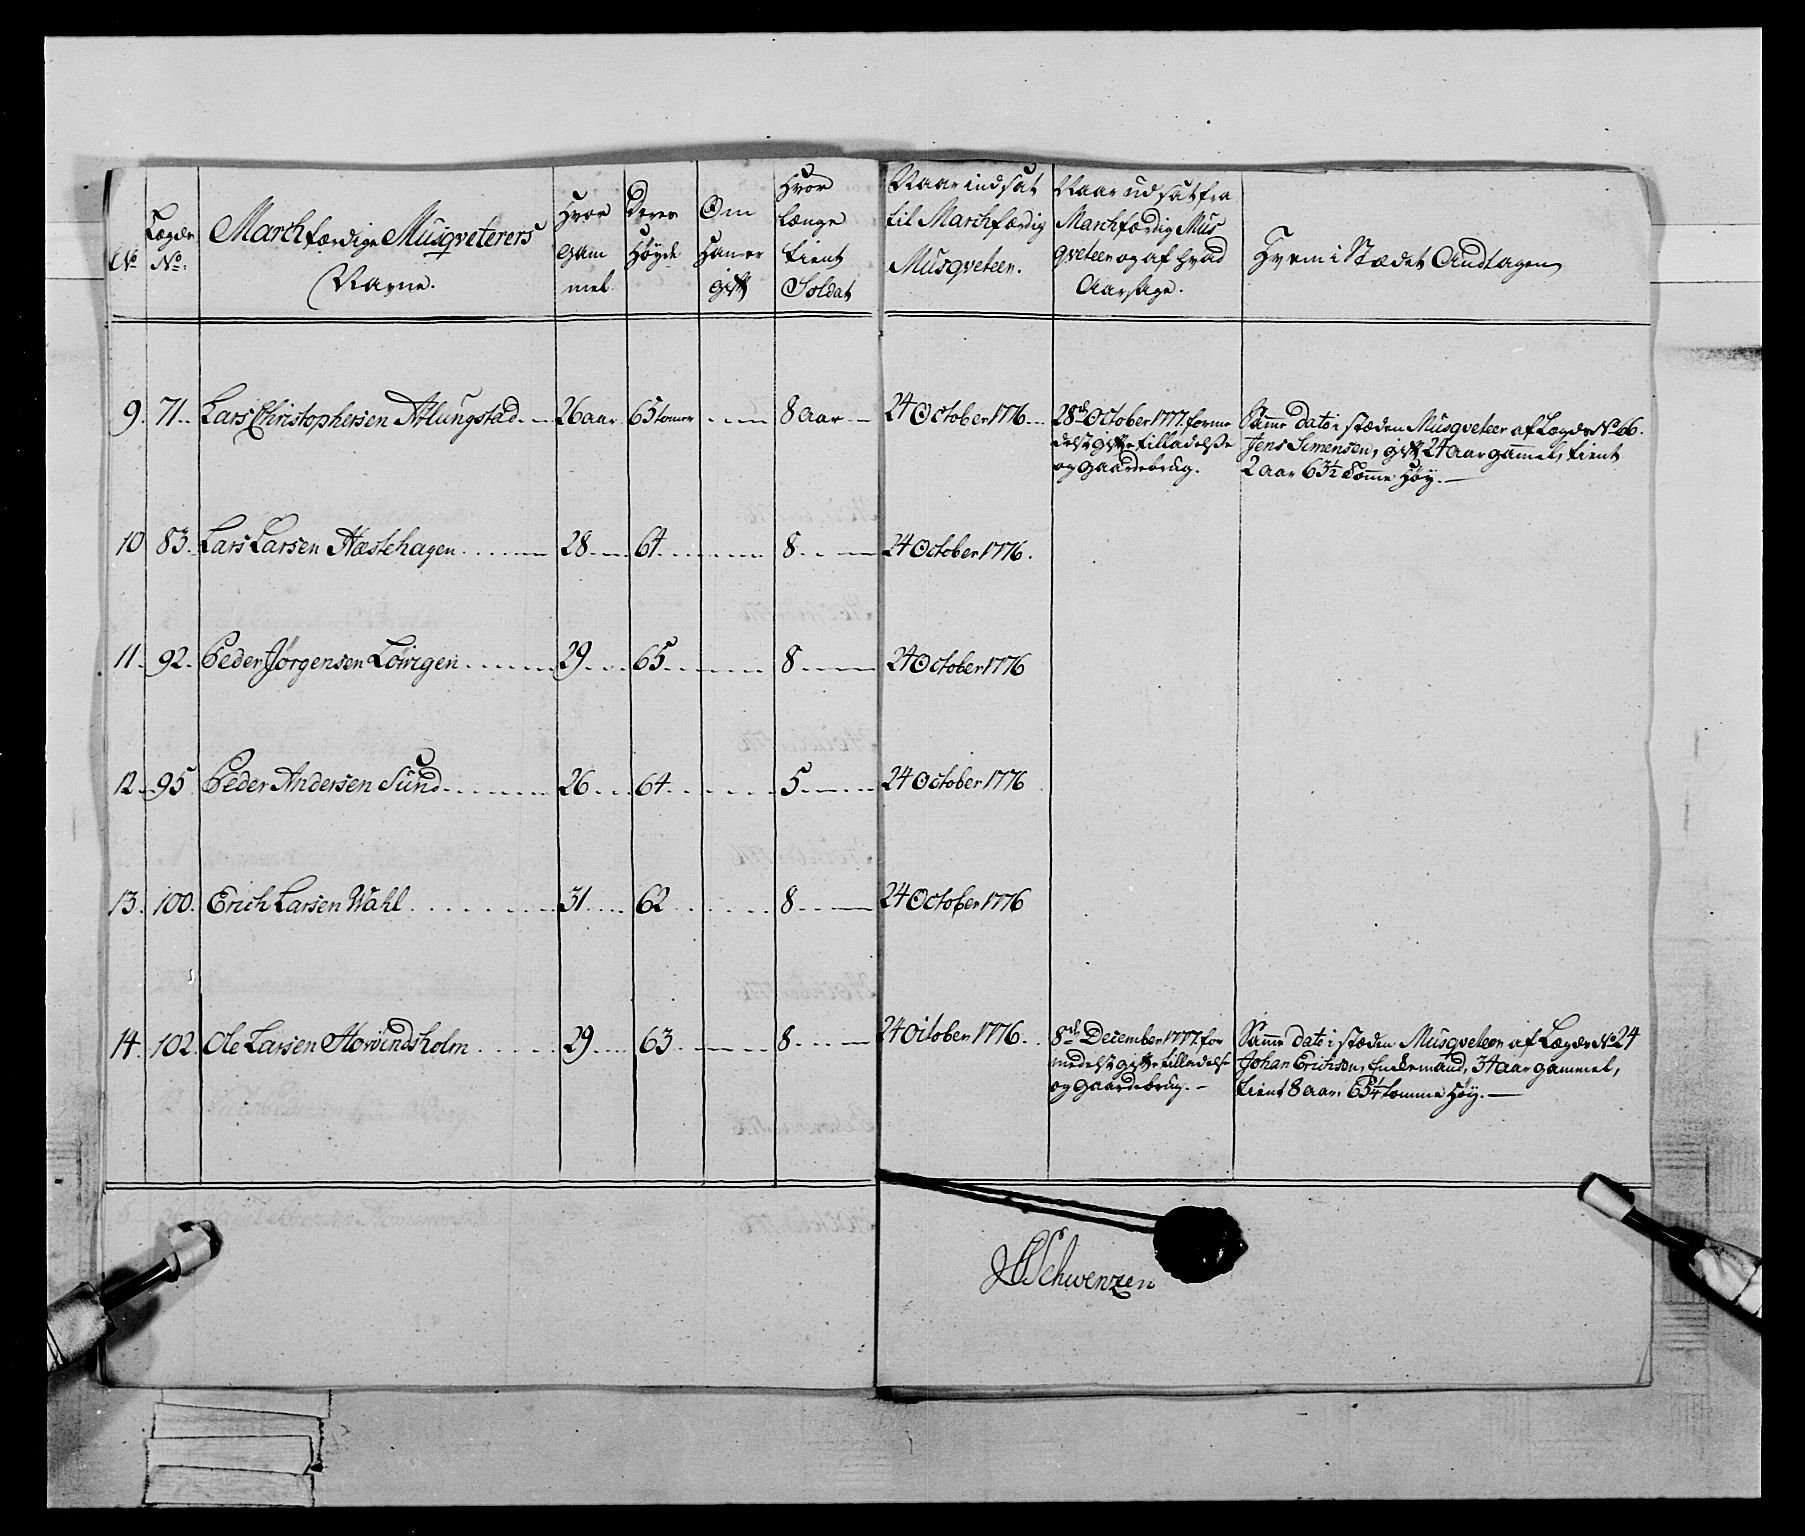 No
Lægds No:
March færdige Musqveterers Navne.
Hvor gam mel
Deres Høyde
Om Han er gift
Hvor længe tient Soldat
Naar indsat til March færdig Musqveteer.
Naar udsat fra March færdig Mus qveteer og af hvad Aarsage.
Hvem i Stædet Andtagen
9. 71. Lars Christophersen Atlungstad 26 aar 65 tomer 8 aar 24 October 1776
28de October 1777. forme
delst gifte tilladelse
og gaardebrug.
Samme dato i stæden Musqveteer af Lægds No 66.
Jens Simensen, gift, 24 aar gamel, tient
2 aar 63½ Tomme Høy.
10 83. Lars Larsen Hæstehagen 28 64 8 24 October 1776.
11. 92. Peder Jørgensen 29 65 8 24 October 1776
12. 95 Peder Andersen Sund 26 64 5 24 October 1776
13. 100. Erich Larsen Wahl 31 62 8 24 October 1776
14. 102. Ole Larsen Horvindsholm 29 63 8 24 October 1776.
8de December 1777. for
medelst gifte tilladelse
og gaardebrug.
Samme dato i stæden Musqveteer af Lægds No 24
Johan Erichsen, Enkemand, 34 aar gammel,
tient 8 aar, 63¼ tomme Høy.
Schwenzen